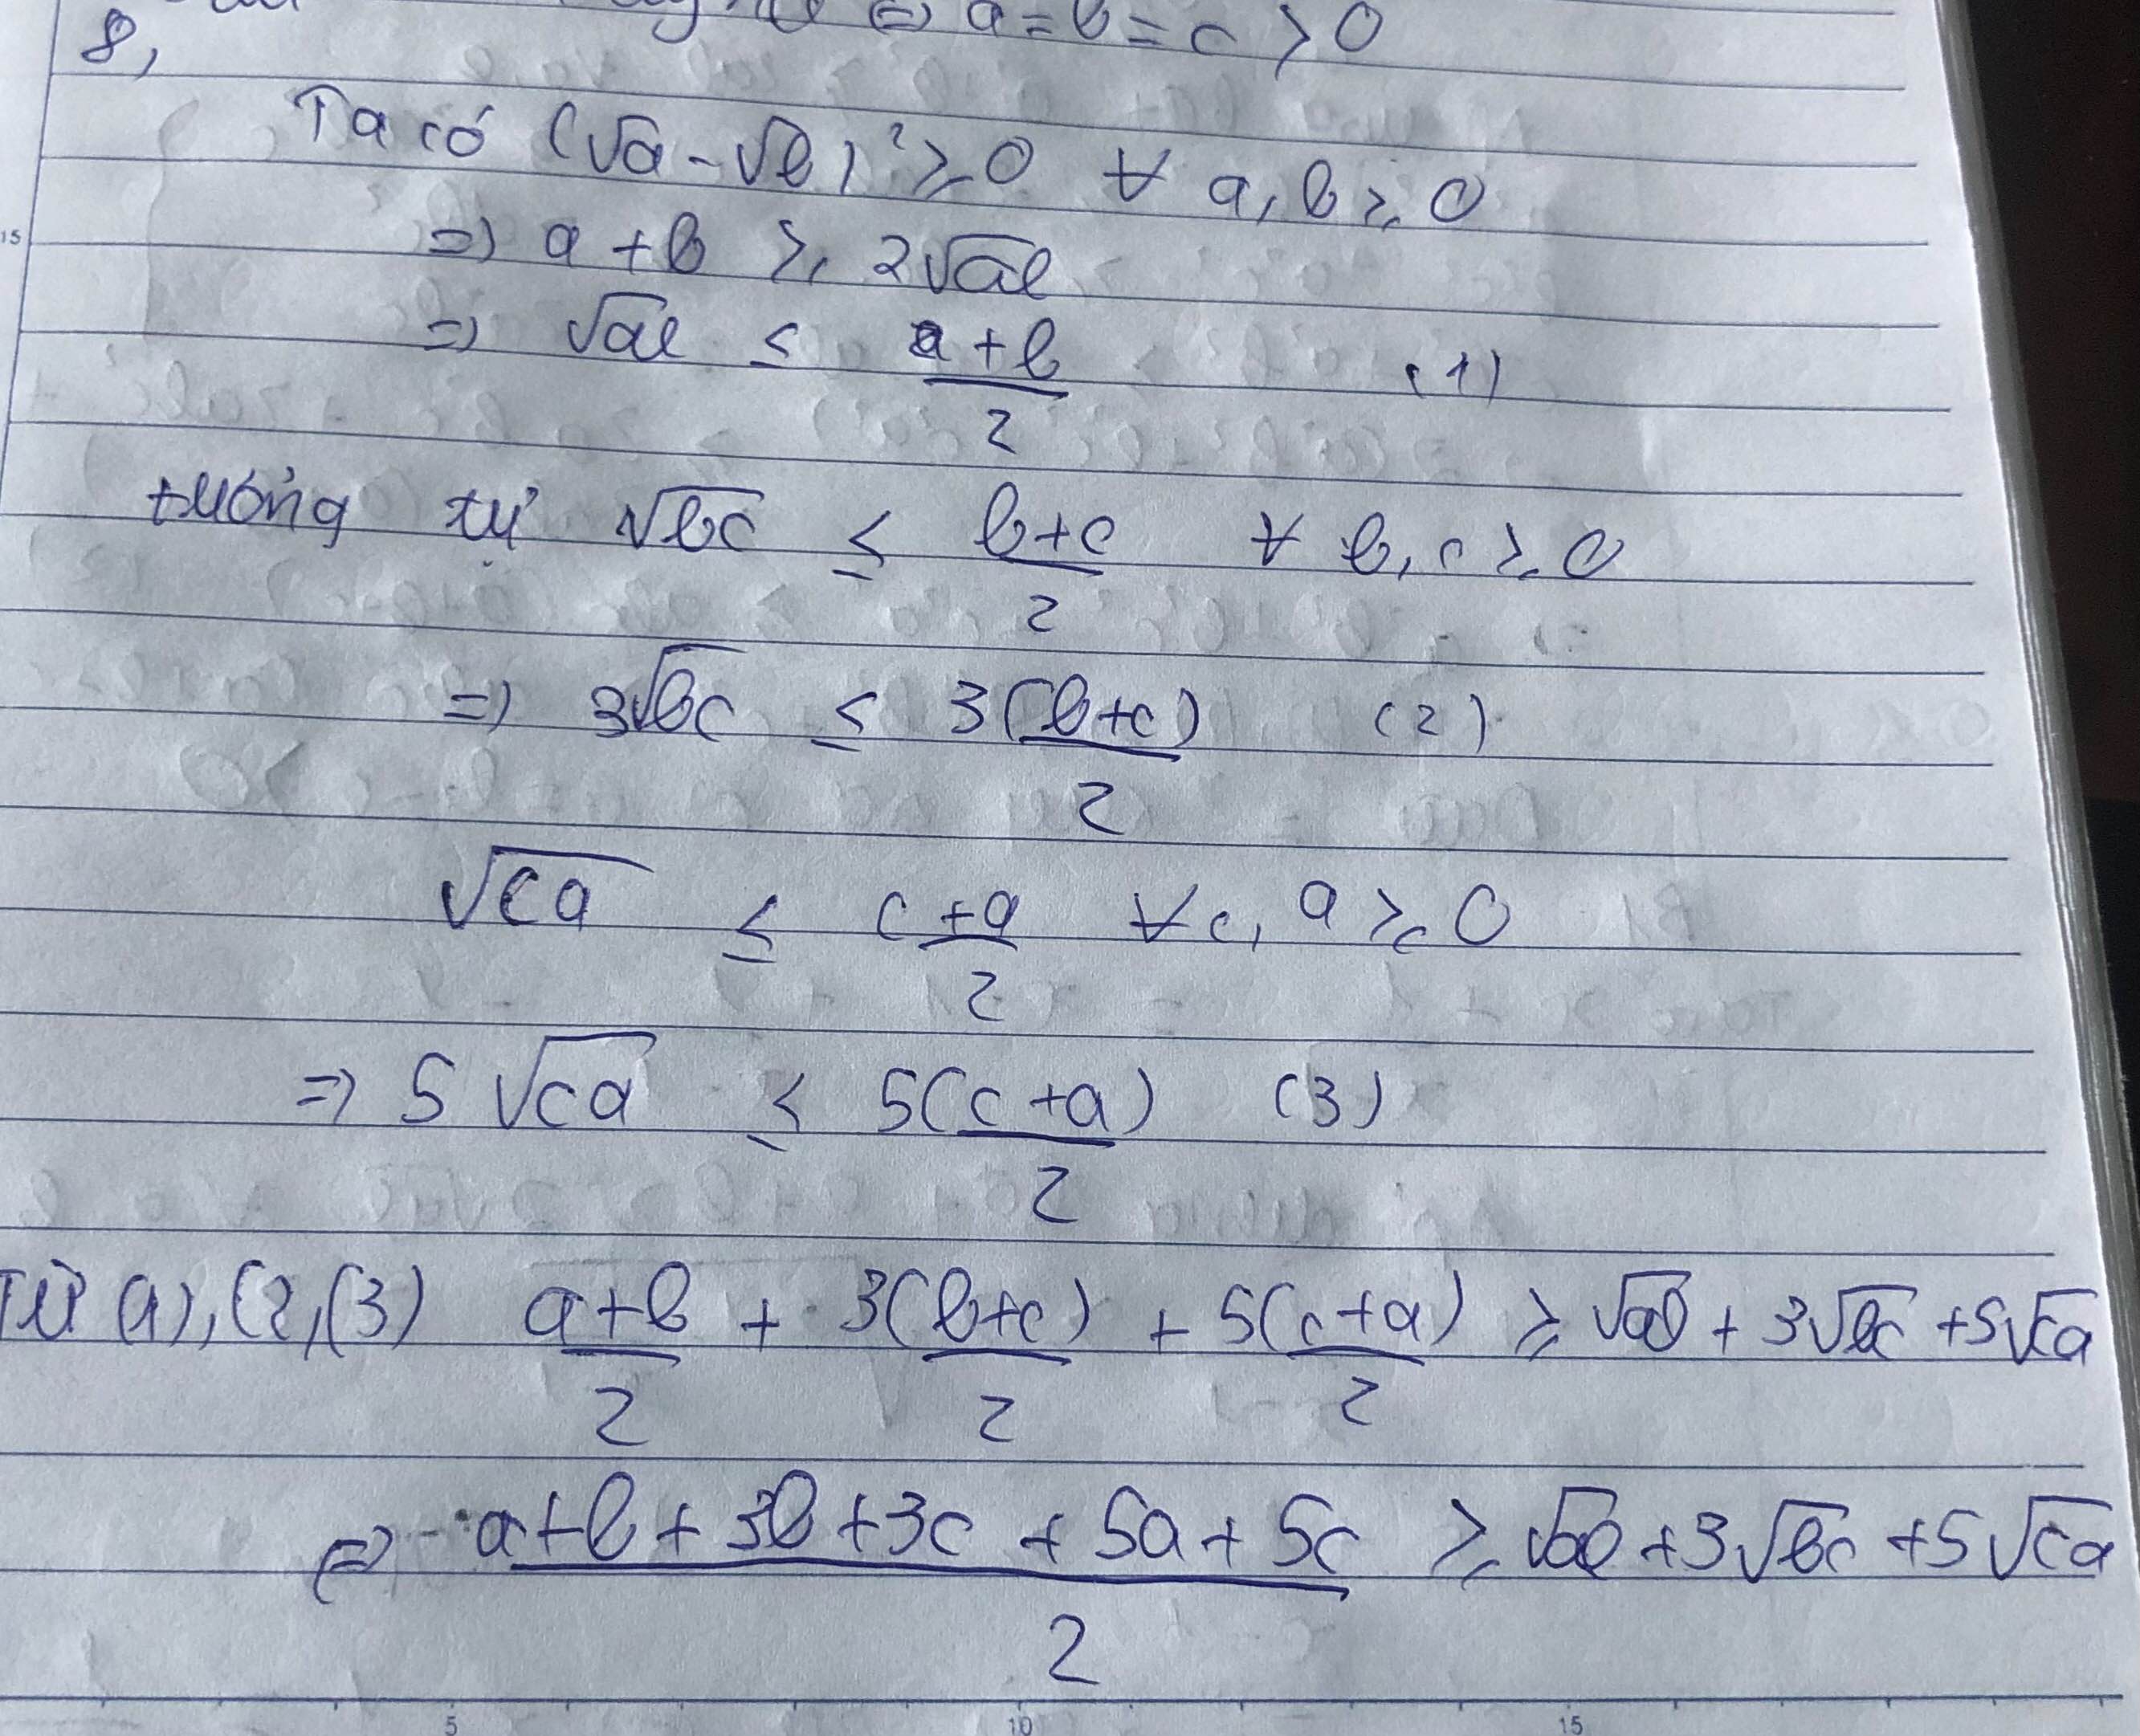 ⇔ a = b = c > 0
8,
Ta có (√a - √b)² ≥ 0 ∀ a, b ≥ 0
=> a + b ≥ 2√ab
=> √ab ≤ (a + b)/2 (1)
tương tự √bc ≤ (b+c)/2 ∀ b, c ≥ 0
=> 3√bc ≤ 3(b+c)/2 (2)
√ca ≤ (c+a)/2 ∀ c, a ≥ 0
=> 5√ca ≤ 5(c+a)/2 (3)
Từ (1), (2, (3) (a+b)/2 + 3(b+c)/2 + 5(c+a)/2 ≥ √ab + 3√bc + 5√ca
⇔ (a+b+3b+3c+5a+5c)/2 ≥ √ab + 3√bc + 5√ca
15
5 10 15